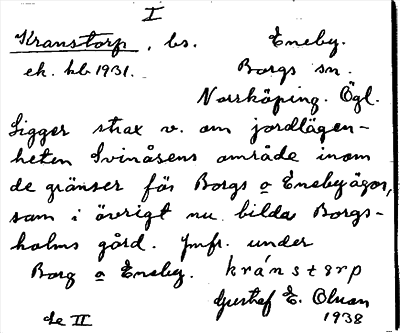 I
Kranstorp, bs. Eneby.
ek. kb 1931. Borgs sn.
Norrköping. Ögl.
Ligger strax v. om jordlägen-
heten Svinåsens område inom
de gränser för Borgs o Enebyägor,
som i övrigt nu bilda Borgs-
holms gård. Jmfr. under
Borg o Eneby. kránstǝrp
Gustaf E. Olsson
de II 1938